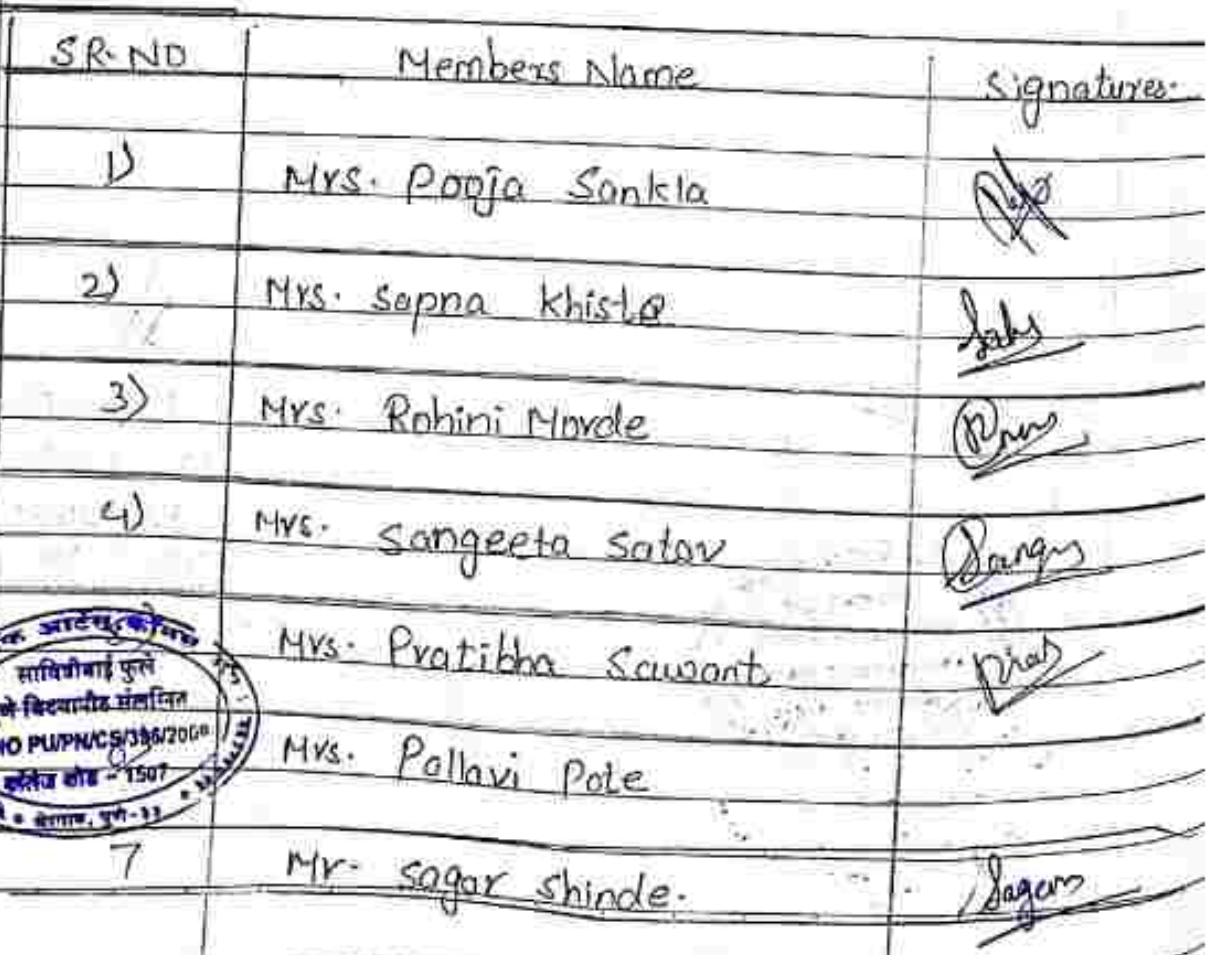 SR. NO Members Name Signatures.
1) Mrs. Pooja Sankla
2) Mrs. Sapna Khiste
3) Mrs. Rohini Morde
4) Mrs. Sangeeta Satav
Mrs. Pratibha Sawant
Mrs. Pallavi Pote
7 Mr. Sagar Shinde. Sagar
सावित्रीबाई फुले
NO PU/PN/CS/
कॉलेज कोड - 1507